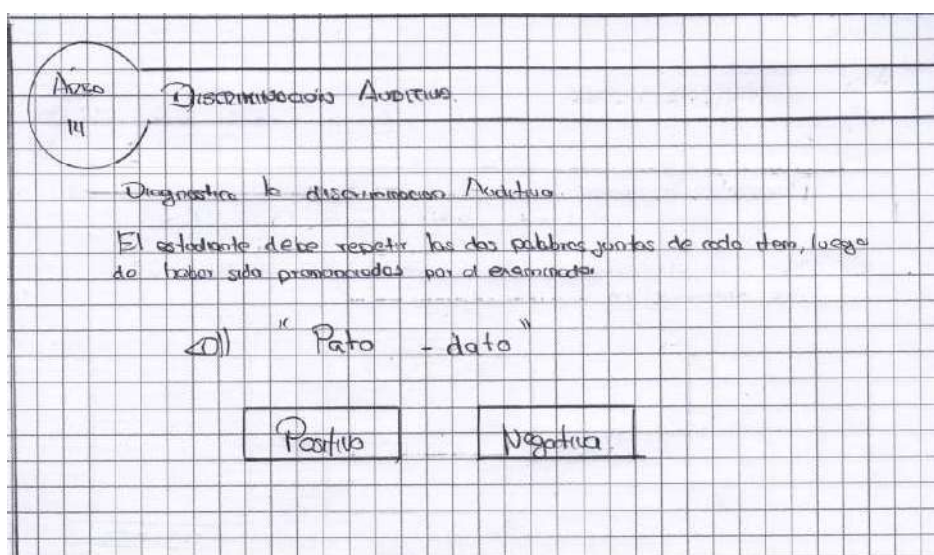 Área
III
Discriminación Auditiva.
Diagnostica la discriminación Auditiva.
El estudiante debe repetir las dos palabras juntas de cada item, luego
de haber sido pronunciadas por el examinador
"Pato - dato"
Positivo
Negativa.